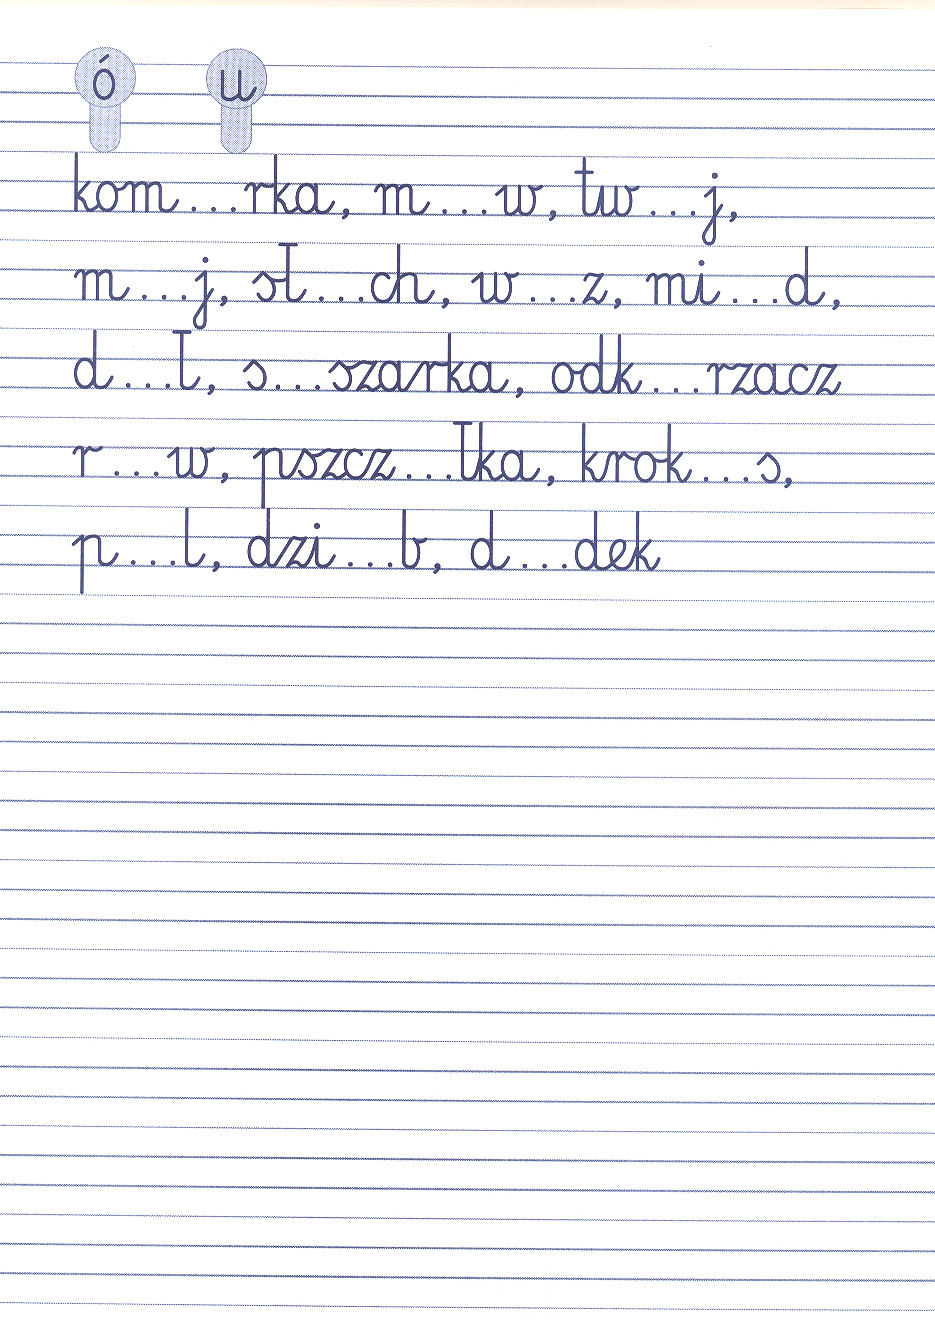 ó u
kom...rka, m...w, tw...j,
m...j, sł...ch, w...z, mi...d,
d...ł, s...szarka, odk...rzacz
r...w, pszcz...łka, krok...s,
p...l, dzi...b, d...dek